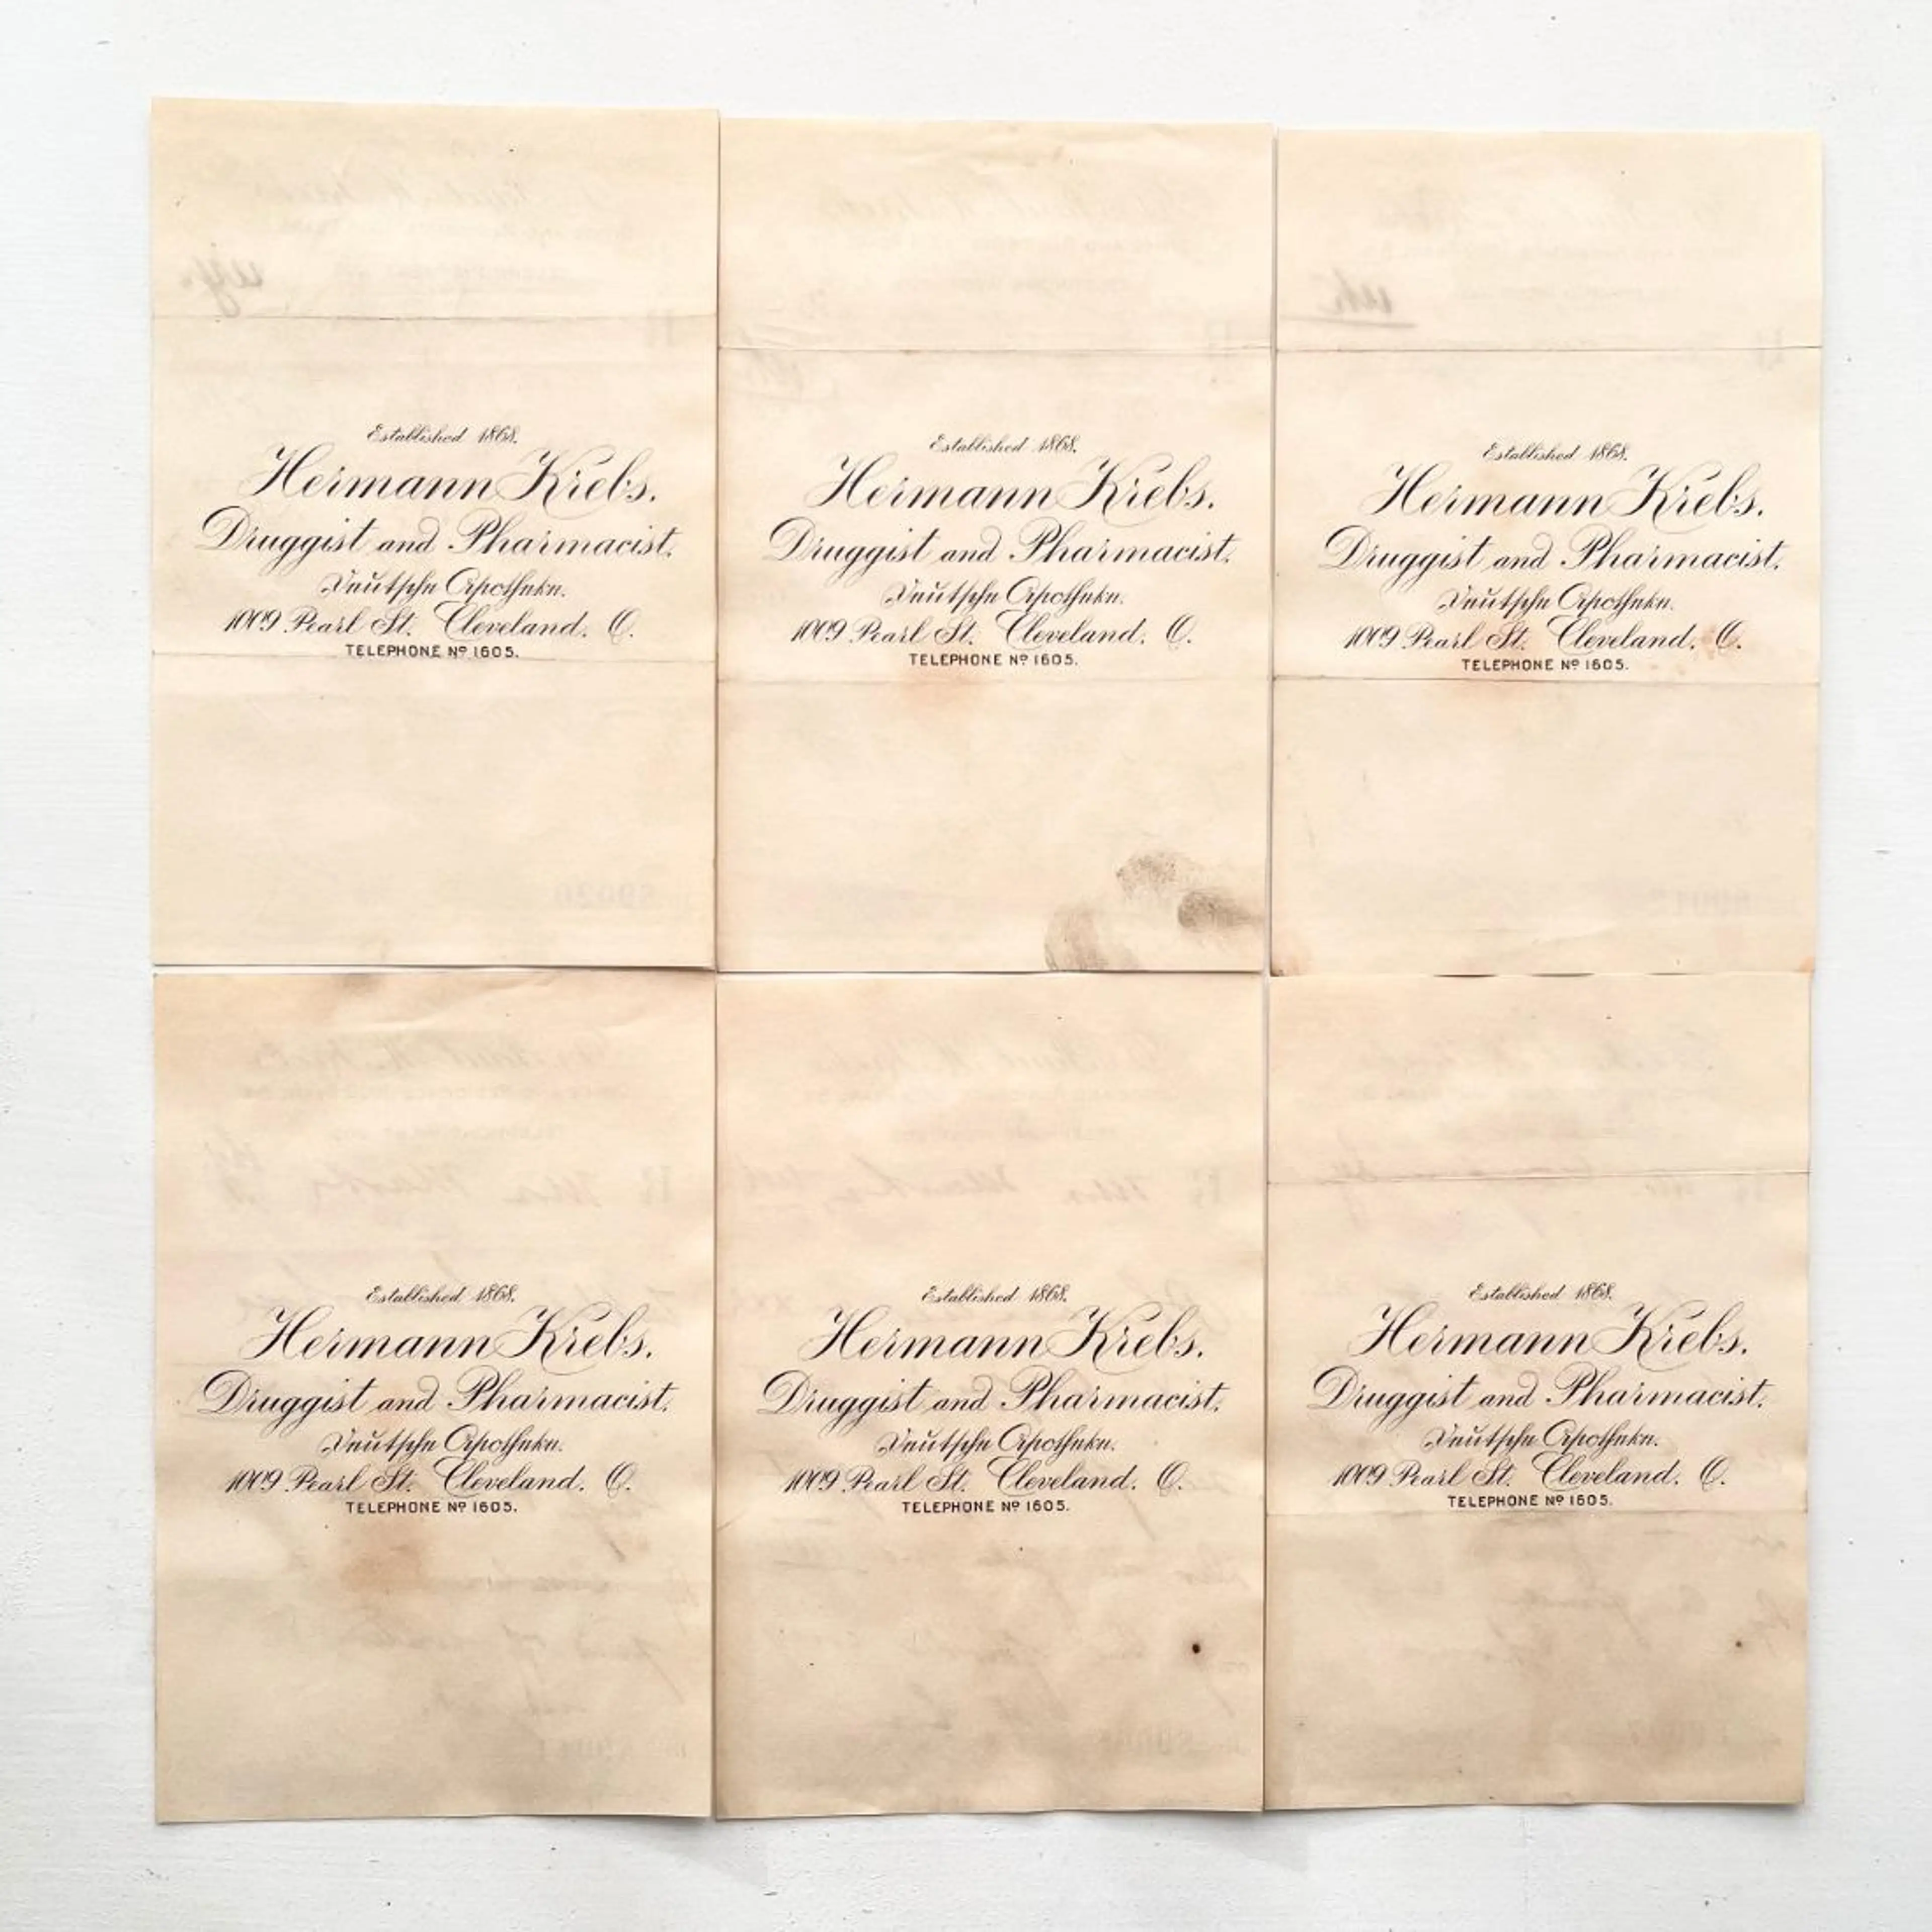 Established 1868.
Hermann Krebs.
Druggist and Pharmacist.
Deutsche Apotheke.
1009 Pearl St. Cleveland. O.
TELEPHONE Nº 1605.
Established 1868.
Hermann Krebs.
Druggist and Pharmacist.
Deutsche Apotheke.
1009 Pearl St. Cleveland. O.
TELEPHONE Nº 1605.
Established 1868.
Hermann Krebs.
Druggist and Pharmacist.
Deutsche Apotheke.
1009 Pearl St. Cleveland. O.
TELEPHONE Nº 1605.
Established 1868.
Hermann Krebs.
Druggist and Pharmacist.
Deutsche Apotheke.
1009 Pearl St. Cleveland. O.
TELEPHONE Nº 1605.
Established 1868.
Hermann Krebs.
Druggist and Pharmacist.
Deutsche Apotheke.
1009 Pearl St. Cleveland. O.
TELEPHONE Nº 1605.
Established 1868.
Hermann Krebs.
Druggist and Pharmacist.
Deutsche Apotheke.
1009 Pearl St. Cleveland. O.
TELEPHONE Nº 1605.